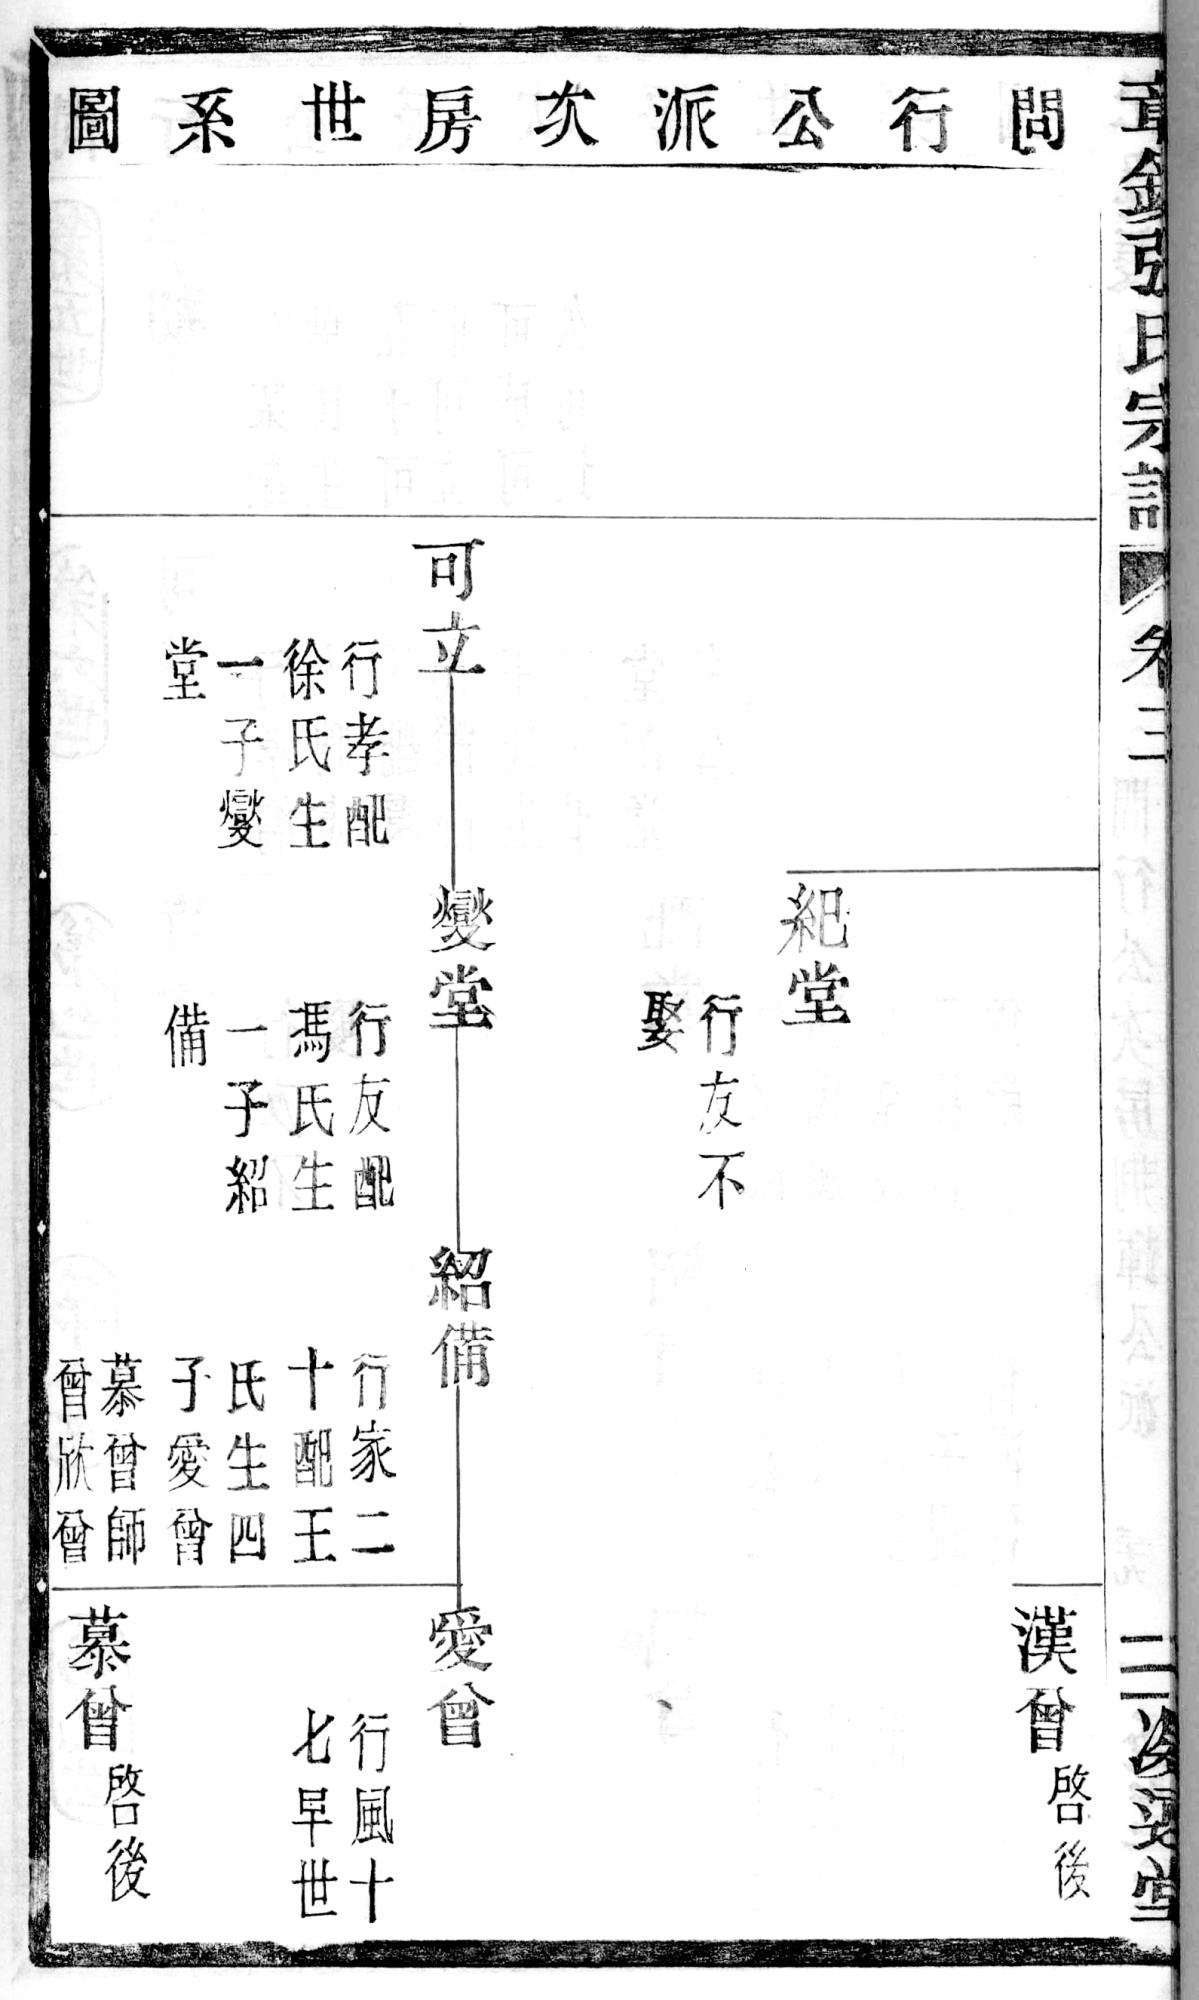 問行公派次房世系圖
章鎮張氏宗譜
卷三
漢曾
啓後
紀堂
行友不
娶
可立
行孝配
徐氏生
一子燮
堂
燮堂
行友配
馮氏生
一子紹
備
紹備
行家二
十配王
氏生四
子愛曾
慕曾師
曾欣曾
愛曾
行風十
七早世
慕曾
啓後